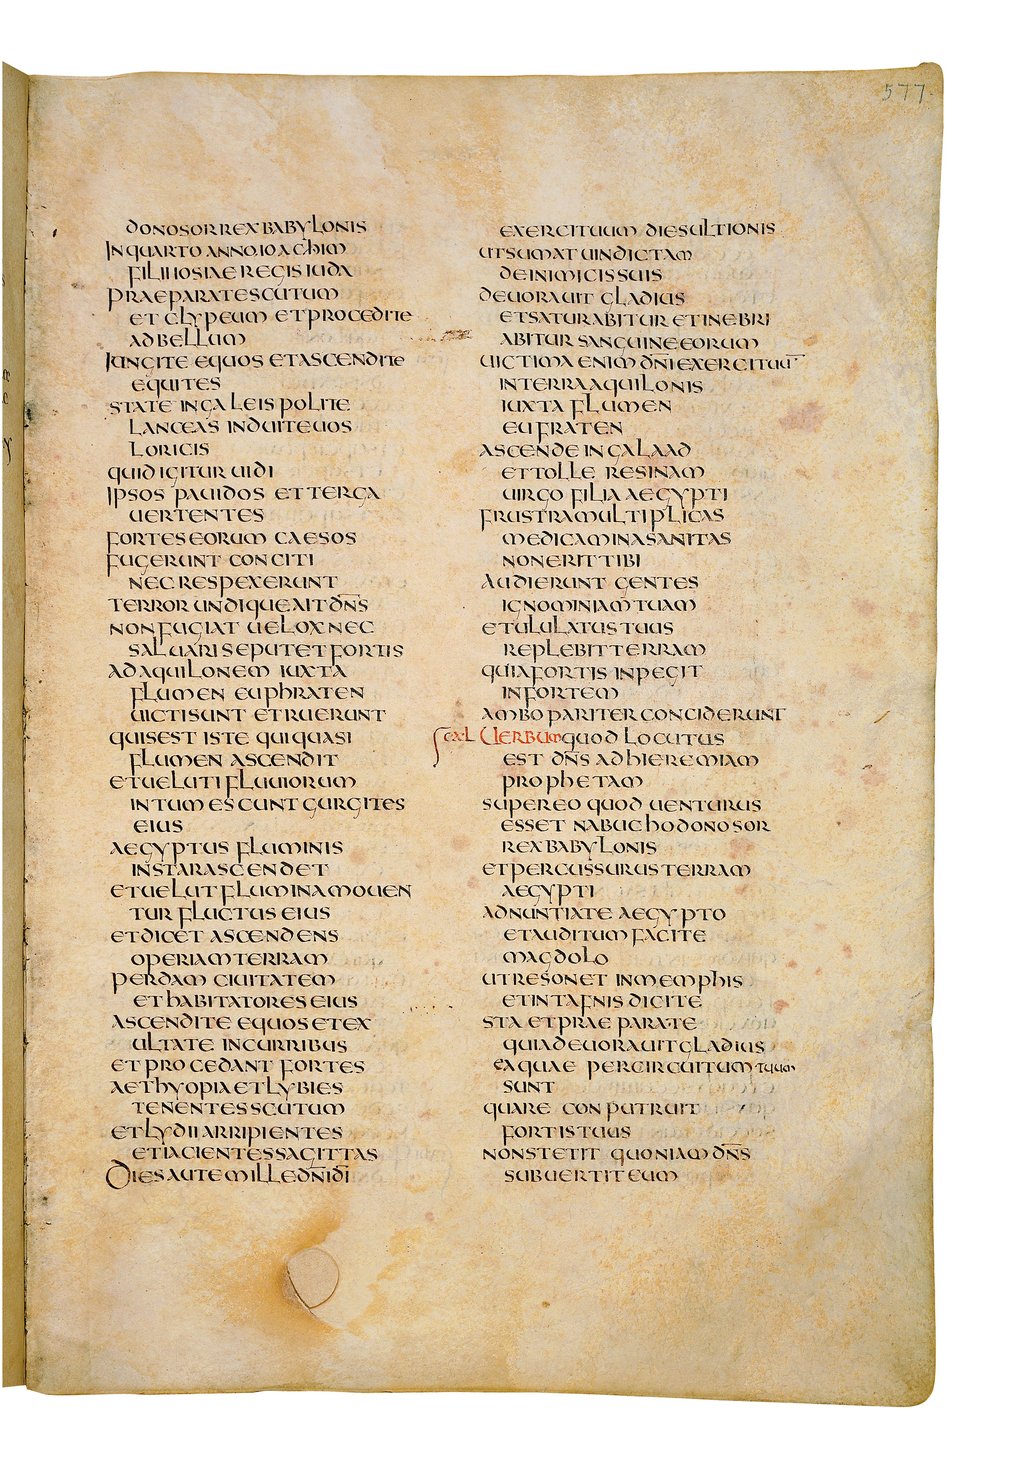 577
DONOSORREXBABYLONIS
INQUARTOANNO.IOACHIM
FILIIIOSIAEREGISIUDA
PRAEPARATESCUTUM
ETCLYPEUM ETPROCEDITE
ADBELLUM
IUNGITE EQUOS ETASCENDITE
EQUITES
STATE INGALEISPOLITE
LANCEAS INDUITEUOS
LORICIS
QUIDIGITURUIDI
IPSOS PAUIDOS ETTERGA
UERTENTES
FORTESEORUM CAESOS
FUGERUNT CONCITI
NECRESPEXERUNT
TERROR UNDIQUEAITDN̄S
NONFUGIAT UELOXNEC
SALUARISEPUTETFORTIS
ADAQUILONEM IUXTA
FLUMEN EUPHRATEN
UICTISUNT ETRUERUNT
QUISEST ISTE QUIQUASI
FLUMEN ASCENDIT
ETUELUTIFLUUIORUM
INTUMESCUNTGURGITES
EIUS
AEGYPTUS FLUMINIS
INSTARASCENDET
ETUELUTFLUMINAMOUEN
TUR FLUCTUS EIUS
ETDICET ASCENDENS
OPERIAMTERRAM
PERDAM CIUITATEM
ETHABITATORESEIUS
ASCENDITE EQUOSETEX
ULTATE INCURRIBUS
ETPROCEDANT FORTES
AETHYOPIAETLYBIES
TENENTESSCUTUM
ETLYDIIARRIPIENTES
ETIACIENTESSAGITTAS
DIESAUTEMILLEDN̄IDĪ
EXERCITUUM DIESULTIONIS
UTSUMATUINDICTAM
DEINIMICISSUIS
DEUORAUIT GLADIUS
ETSATURABITURETINEBRI
ABITUR SANGUINEEORUM
UICTIMAENIMDN̄IEXERCITUŪ
INTERRAAQUILONIS
IUXTA FLUMEN
EUFRATEN
ASCENDEINGALAAD
ETTOLLE RESINAM
UIRGO FILIAAEGYPTI
FRUSTRAMULTIPLICAS
MEDICAMINASANITAS
NONERITTIBI
AUDIERUNT GENTES
IGNOMINIAMTUAM
ETULULATUSTUUS
REPLEBITTERRAM
QUIAFORTISINPEGIT
INFORTEM
AMBOPARITERCONCIDERUNT
UERBUMQUODLOCUTUS
EST DN̄S ADHIEREMIAM
PROPHETAM
SUPEREO QUOD UENTURUS
ESSET NABUCHODONOSOR
REXBABYLONIS
ETPERCUSSURUSTERRAM
AEGYPTI
ADNUNTIATE AEGYPTO
ETAUDITUMFACITE
MAGDOLO
UTRESONET INMEMPHIS
ETINTAFNISDICITE
STA ETPRAEPARATE
QUIADEUORAUITGLADIUS
EAQUAE PERCIRCUITUMTUUM
SUNT
QUARE CONPUTRUIT
FORTISTUUS
NONSTETIT QUONIAMDN̄S
SUBUERTITEUM